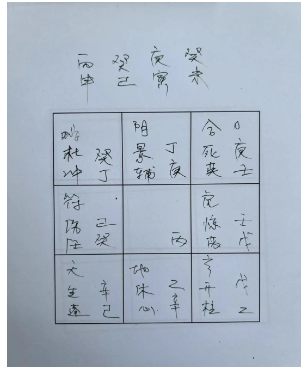 丙 癸 庚 癸
申 巳 寅 未
癸
杜
冲 丁
阴
景 丁
辅 庚
合 庚
死 壬
英
符 己
伤 癸
任
丙
惊 壬
芮 戊
生 辛
己
地 乙
休 辛
心
开 戊
柱 乙